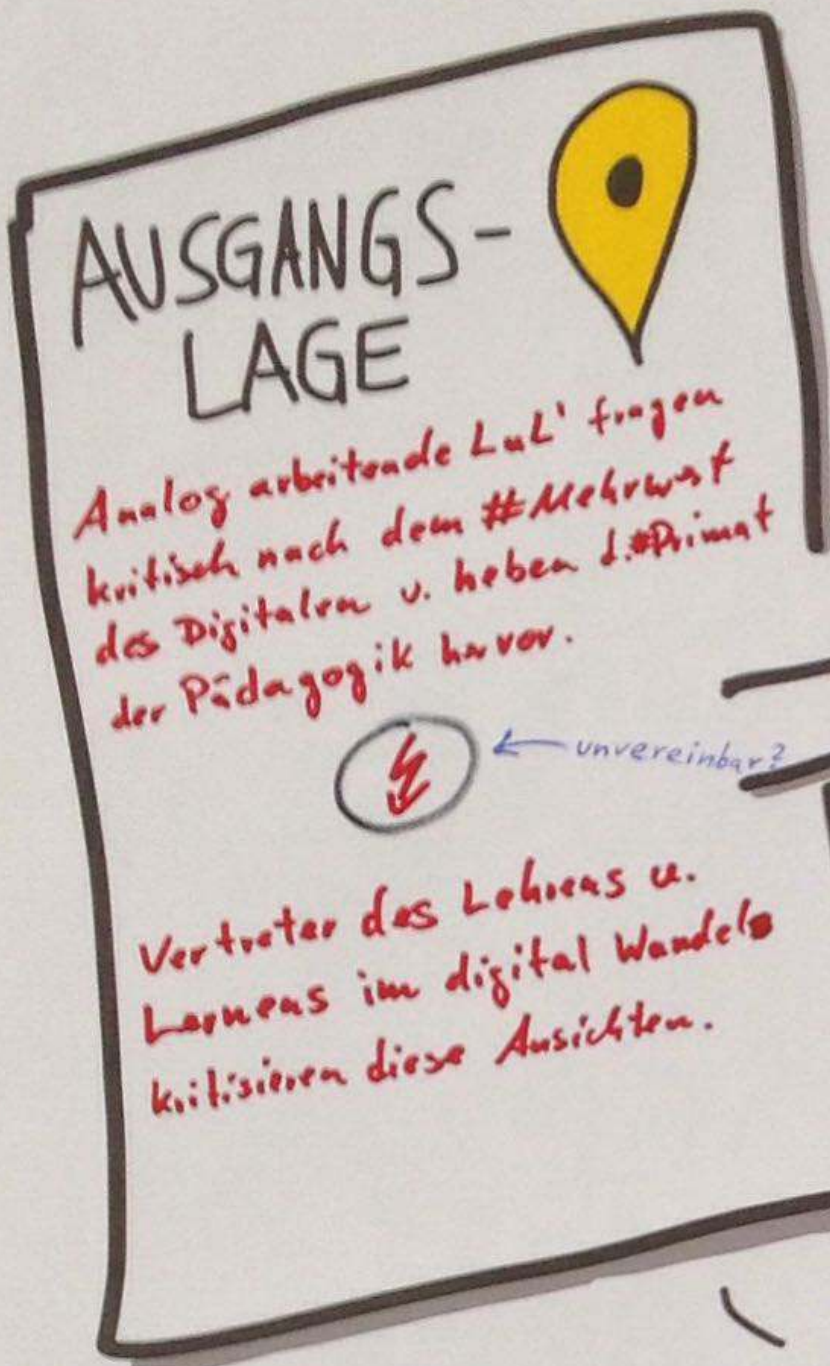 AUSGANGS-
LAGE
Analog arbeitende LuL' fragen
kritisch nach dem #Mehrwert
des Digitalen u. heben d. #Primat
der Pädagogik hervor.
unvereinbar?
Vertreter des Lehrens u.
Lernens im digital Wandels
kritisieren diese Ansichten.